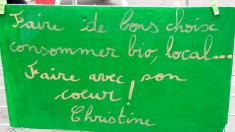 Faire de bons choix
consommer bio, local...
Faire avec son
coeur!
Christine